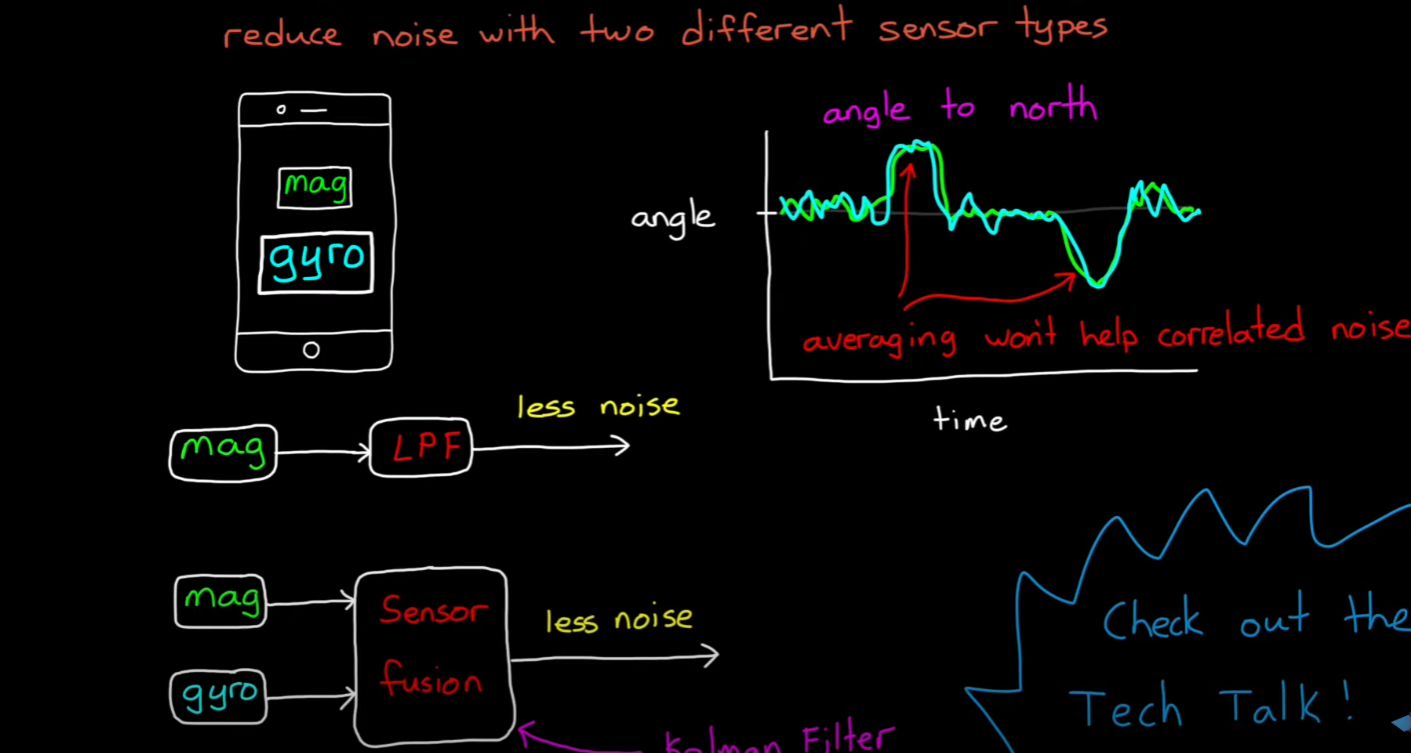 reduce noise with two different sensor types
angle to north
mag
gyro
angle
averaging won't help correlated noise
time
less noise
mag
LPF
mag
gyro
Sensor
fusion
less noise
Kalman Filter
Check out the
Tech Talk!